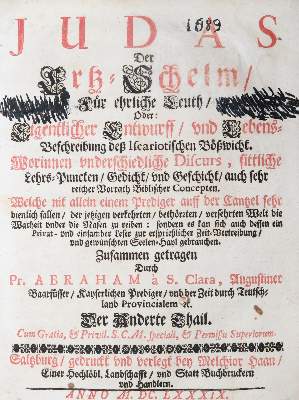 1689
JUDAS
Der
Ertz-Schelm/
Für ehrliche Leuth/
Oder:
Eigentlicher Entwurff/ vnd Lebens-
Beschreibung deß Iscariotischen Bößwicht.
Worinnen vnderschiedliche Discurs, sittliche
Lehrs-Puncten/ Gedicht/ vnd Geschicht/ auch sehr
reicher Vorrath Biblischer Concepten.
Welche nit allein einem Prediger auff der Cantzel sehr
dienlich fallen/ der jetzigen verkehrten/ bethörten/ versehrten Welt die
Warheit vnder die Nasen zu reiben: sondern es kan sich auch dessen ein
Privat- vnd einsamber Leser zur ersprießlicher Zeit-Vertreibung/
vnd gewünschten Seelen-Hayl gebrauchen.
Zusammen getragen
Durch
Pr. ABRAHAM à S. Clara, Augustiner
Baarfüsser/ Kayserlichen Prediger/ vnd der Zeit durch Teutsch-
land Provincialem &c.
Der Anderte Thail.
Cum Gratia, & Privil. S. C. M. speciali, & Permissu Superiorum.
Saltzburg/ gedruckt vnd verlegt bey Melchior Haan/
Einer Hochlöbl. Landschafft/ vnd Statt Buchdruckern
vnd Handlern.
ANNO M. DC. LXXXIX.